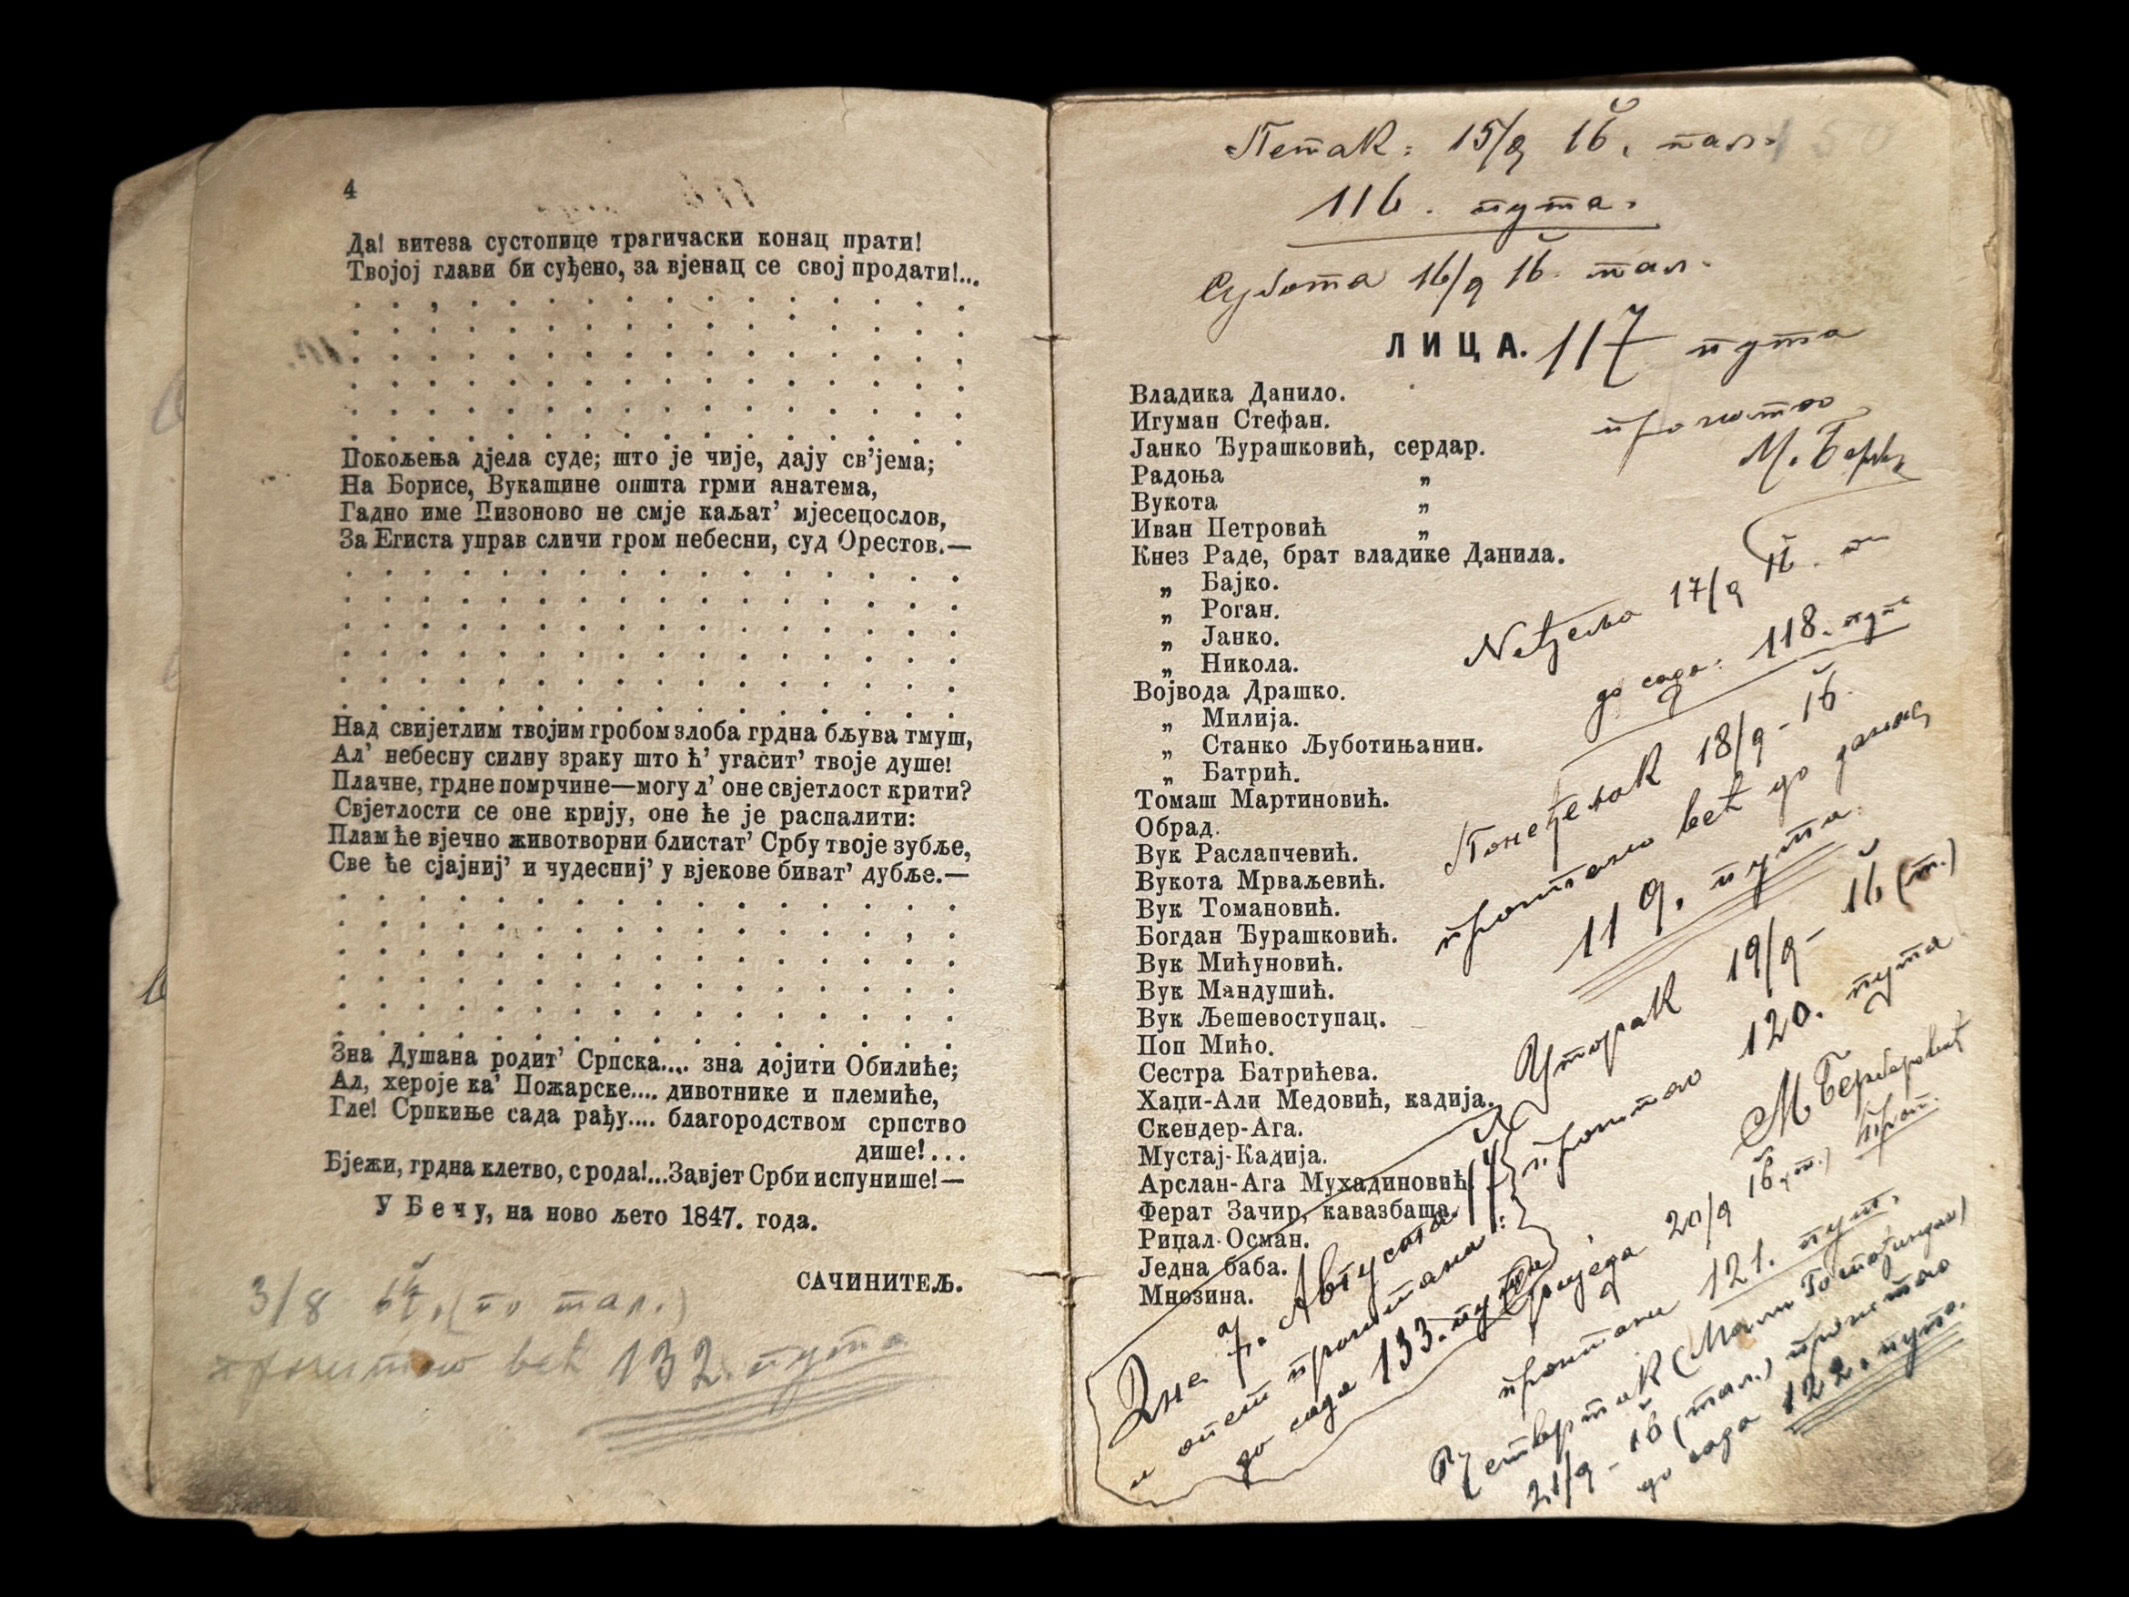 4
Да! витеза сустопице трагичаски конац прати!
Твојој глави би суђено, за вјенац се свој продати!...
Покољења дјела суде; што је чије, дају св’јема;
На Борисе, Вукашине општа грми анатема,
Гадно име Пизоново не смје каљат’ мјесецослов,
За Егиста управ сличи гром небесни, суд Орестов.—
Над свијетлим твојим гробом злоба грдна бљува тмуш,
Ал’ небесну силну зраку што ћ’ угасит’ твоје душе!
Плачне, грдне помрчине—могу л’ оне свјетлост крити?
Свјетлости се оне крију, оне ће је распалити:
Плам ће вјечно животворни блистат’ Србу твоје зубље,
Све ће сјајниј’ и чудесниј’ у вјекове биват’ дубље.—
Зна Душана родит’ Српска.... зна дојити Обилиће;
Ал, хероје ка’ Пожарске.... дивотнике и племиће,
Гле! Српкиње сада рађу.... благородством српство
дише!...
Бјежи, грдна клетво, с рода!...Завјет Срби испунише!—
У Бечу, на ново љето 1847. года.
САЧИНИТЕЉ.
3/8 (по тал.)
већ 132. пута
Петак: 15/9 16. тал.
116. пута.
Субота 16/9 16. тал.
ЛИЦА. 117 пута
прочитао
Владика Данило.
Игуман Стефан.
Јанко Ђурашковић, сердар.
Радоња „
Вукота „
Иван Петровић „
Кнез Раде, брат владике Данила.
„ Бајко.
„ Роган.
„ Јанко.
„ Никола.
Војвода Драшко.
„ Милија.
„ Станко Љуботињанин.
„ Батрић.
Томаш Мартиновић.
Обрад.
Вук Раслапчевић.
Вукота Мрваљевић.
Вук Томановић.
Богдан Ђурашковић.
Вук Мићуновић.
Вук Мандушић.
Вук Љешевоступац.
Поп Мићо.
Сестра Батрићева.
Хаџи-Али Медовић, кадија.
Скендер-Ага.
Мустај-Кадија.
Арслан-Ага Мухадиновић.
Ферат Зачир, кавазбаша.
Риџал-Осман.
Једна баба.
Мнозина.
Неђеља 17/9 16.
до сада: 118. пута
Понеђељак 18/9-16.
прочитао већ до данас
119. пута.
Уторак 19/9-16 (т.)
прочитао 120. пута
М Берберовић
Сриједа 20/9 16 (т.)
прочитани 121. пут.
Четвртак (Мали Госпођиндан)
21/9-16 (тал.) прочитао
до сада 122. пута.
Дне 7. Августа 17
и опет прочитана:
до сада 133. пута